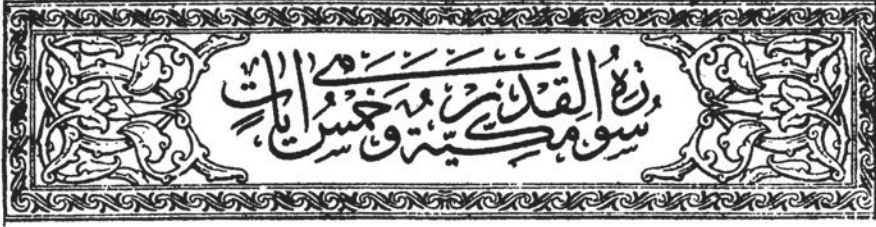 سُورَةُ الْقَدْرِ مَكِّيَّةٌ وَهِيَ خَمْسُ اٰيَاتٍ